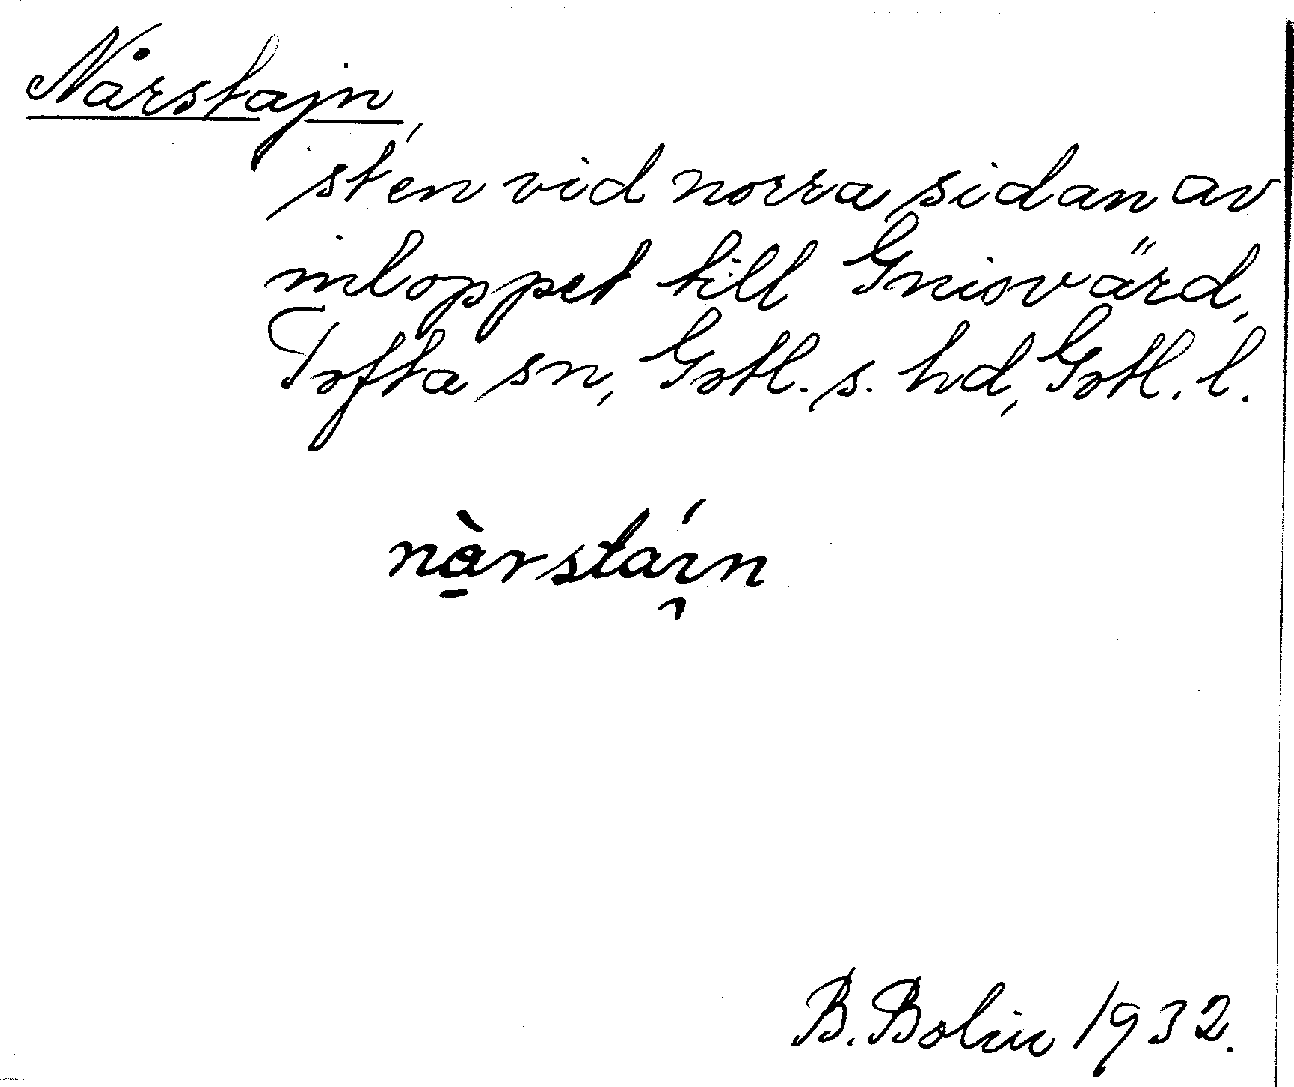 Nårstajn,
sten vid norra sidan av
inloppet till Gnisvärd,
Tofta sn, Gotl. s. hd, Gotl. l.
nàrstáın
B. Bolin 1932.